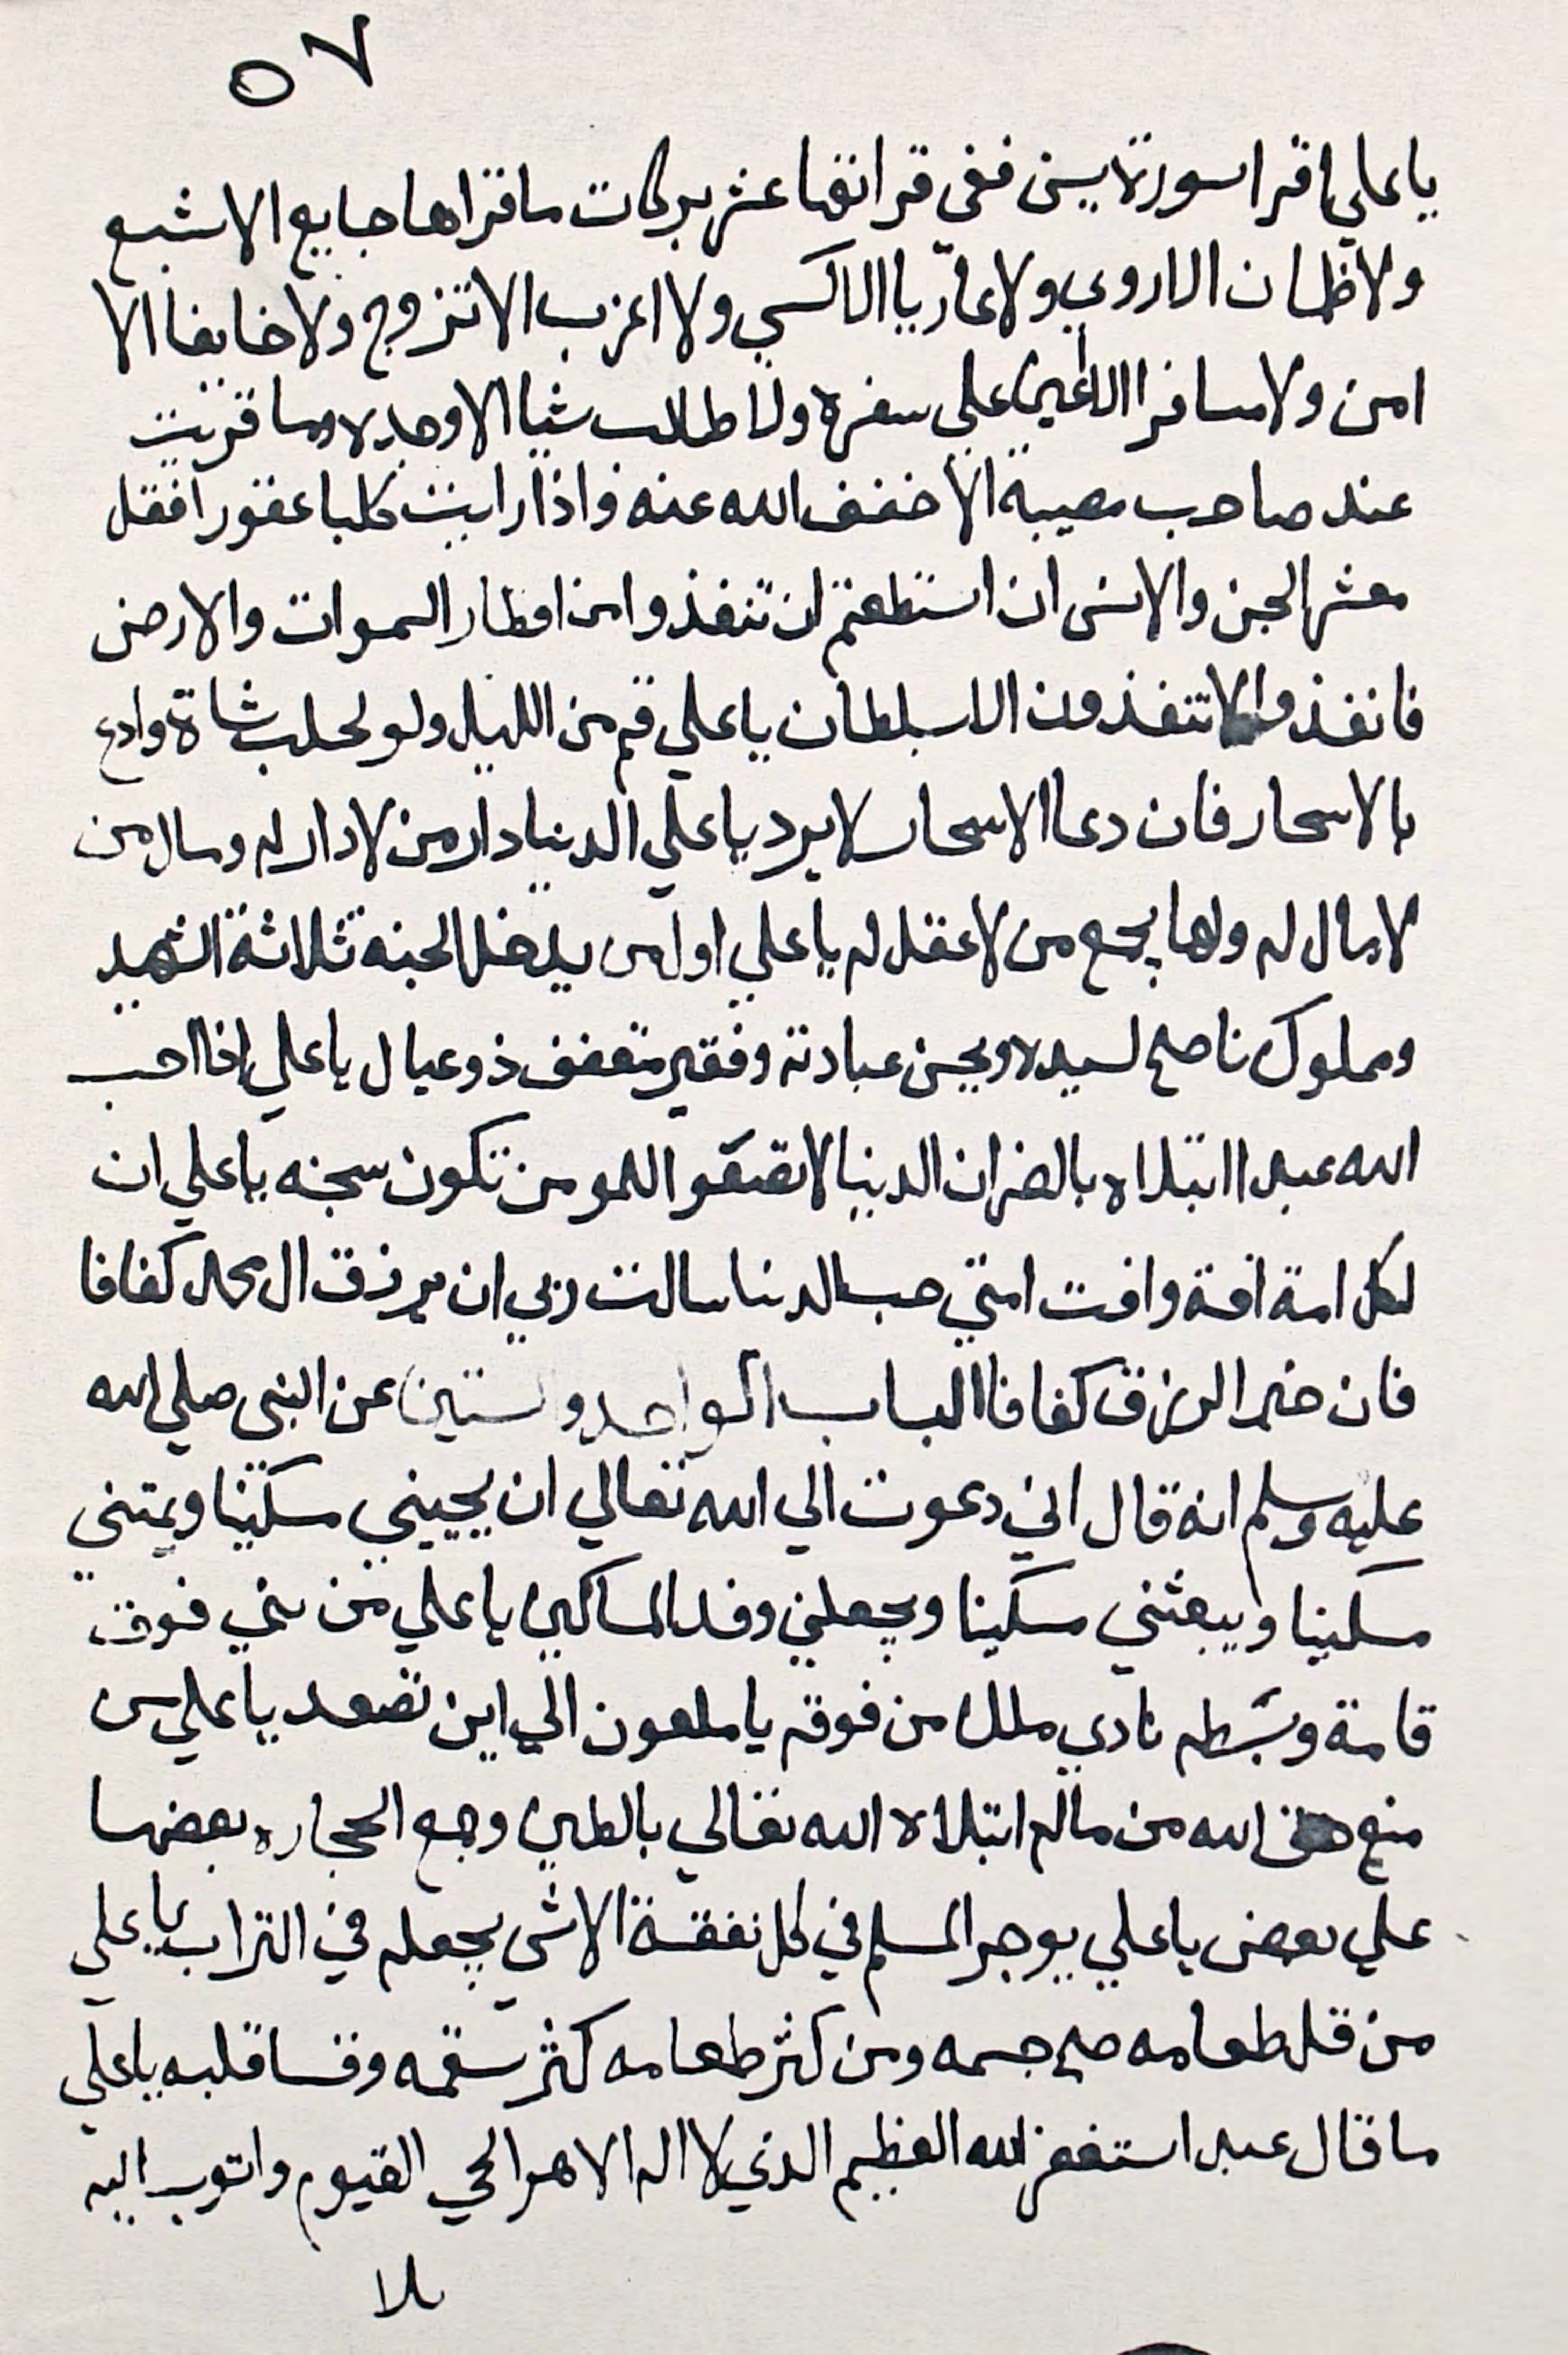 ٥٧
يا علي اقرا سورة يس ففي قرانتها عشر بركات ما قراها جايع الا شبع
ولا ظمان الا روي ولا عاريا الا كسي ولا اعزب الا تزوج ولا خايفا الا
امن ولا مسافرا الا اعين علي سفره ولا طالب شيا الا وجده وما قريت
عند صاحب مصيبة الا خفف الله عنه واذا رايت كلبا عقورا فقل
معشر الجن والانس ان استطعتم ان تنفذوا من اقطار السموات والارض
فانفذوا لا تنفذون الا بسلطان يا علي قم من الليل ولو لحلب شاة وادع
بالاسحار فان دعا الاسحار لا يرد يا علي الدنيا دار من لا دار له ومال من
لا مال له ولها يجمع من لا عقل له يا علي اول من يدخل الجنه ثلاثة الشهيد
ومملوك ناصح لسيده ويحسن عبادته وفقير متعفف ذو عيال يا علي اذا احب
الله عبدا ابتلاه بالضر ان الدنيا لا تصفوا للمومن تكون سجنه يا علي ان
لكل امة افة وافت امتي حب الدنيا سالت ربي ان يرزق ال محمد كفافا
فان خير الرزق كفافا الباب الواحد وستين عن النبي صلي الله
عليه وسلم انه قال اني دعوت الي الله تعالي ان يحييني مسكينا ويمتني
مسكينا ويبعثني مسكينا ويجعلني وفد المساكين يا علي من بني فوق
قامة وبسطه نادي ملك من فوقه يا ملعون الي اين تصعد يا علي من
منع حق الله من ماله ابتلاه الله تعالي بالطين وجمع الحجاره بعضها
علي بعض يا علي يوجر المسلم في كل نفقة الا شي يجعله في التراب يا علي
من قل طعامه صح جسمه ومن كثر طعامه كثر سقمه وقسا قلبه يا علي
ما قال عبد استغفر الله العظيم الذي لا اله الا هو الحي القيوم واتوب اليه